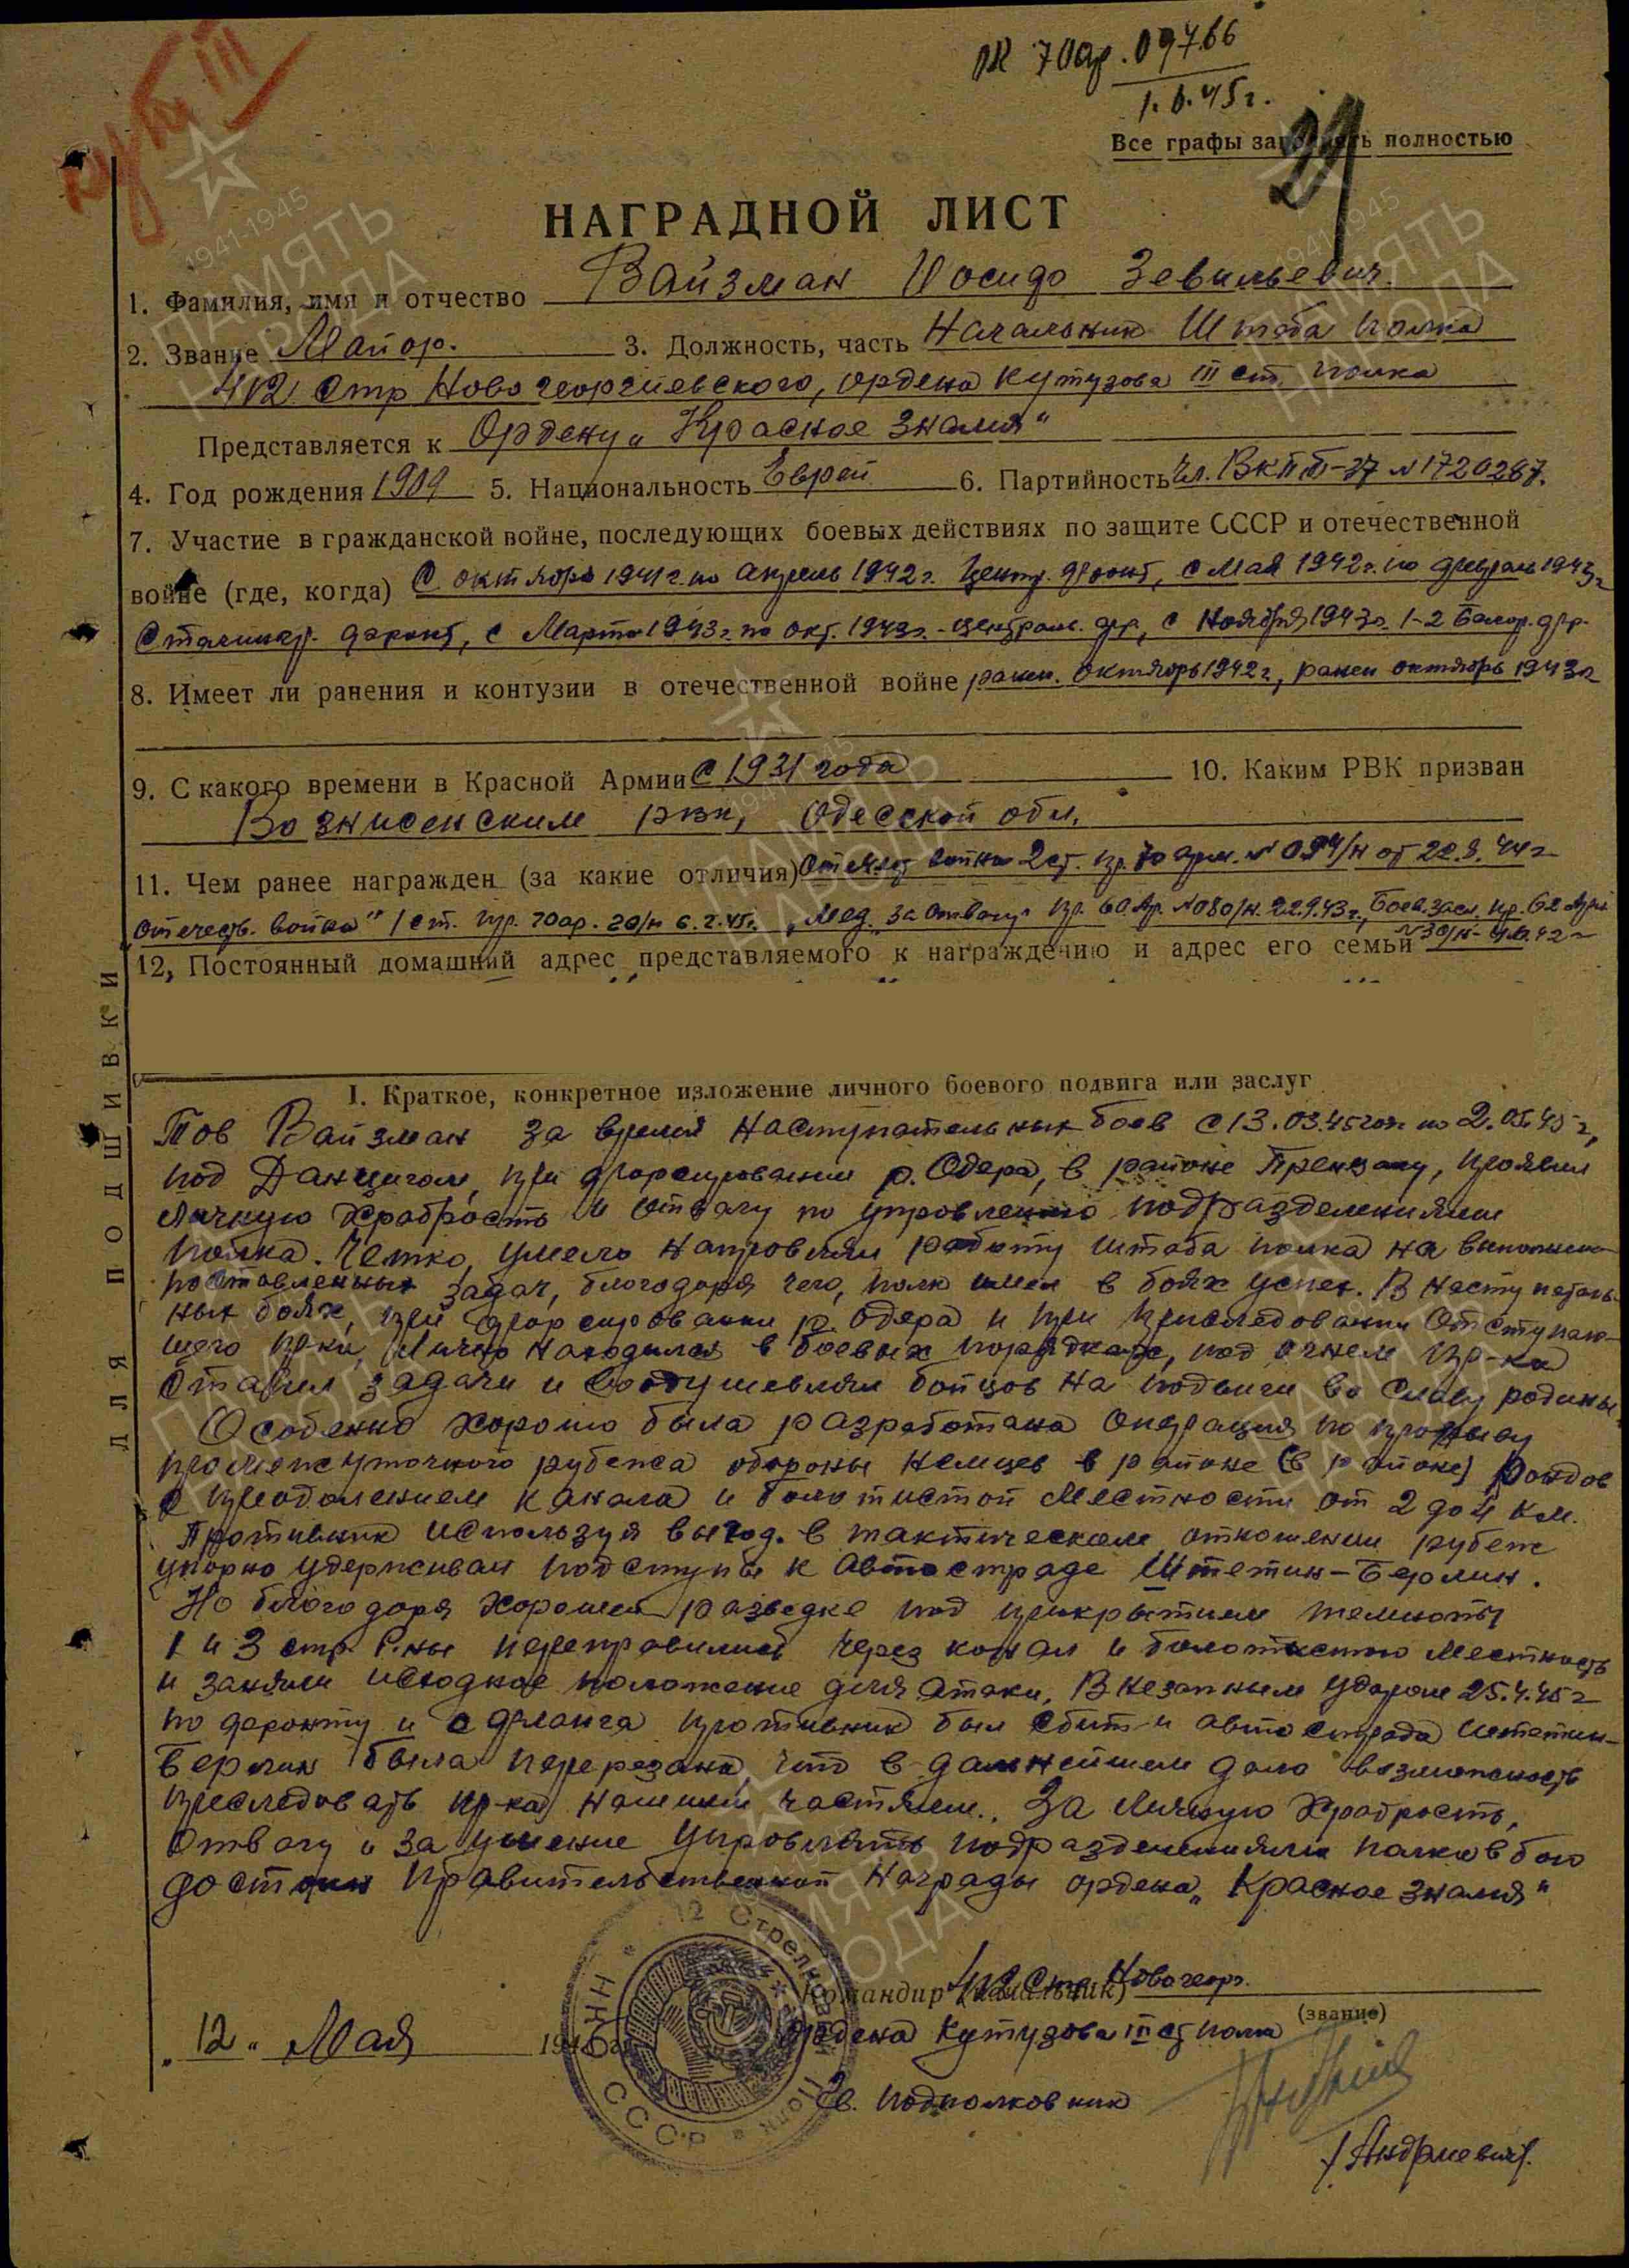 Кут III
пр 70 ар. 097.66
1.6.45 г.
29
Все графы заполнять полностью
НАГРАДНОЙ ЛИСТ
1. Фамилия, имя и отчество Вайзман Иосиф Зевильевич.
2. Звание Майор. 3. Должность, часть Начальник Штаба полка
412 Стр Новогеоргиевского, ордена Кутузова III ст. полка
Представляется к Ордену „Красное Знамя"
4. Год рождения 1909 5. Национальность Еврей 6. Партийность Чл. ВКПб-37 №1720287.
7. Участие в гражданской войне, последующих боевых действиях по защите СССР и отечественной
войне (где, когда) С октября 1941 г. по апрель 1942 г. Центр. фронт, с мая 1942 г. по февраль 1943 г
Сталингр. фронт, с Марта 1943 г. по окт. 1943 г. - централ. фр, с Ноября 1943 г. 1-2 Белор. фр.
8. Имеет ли ранения и контузии в отечественной войне ранен. октябрь 1942 г, ранен октябрь 1943 г
9. С какого времени в Красной Армии С 1931 года 10. Каким РВК призван
Вознисенским рвк, Одесской обл.
11. Чем ранее награжден (за какие отличия) Отечест войны 2 ст. пр. 70 арм. № 094/н от 22.8.44 г
Отечеств. война" 1 ст. пр. 70 ар. 20/н 6.2.45 г. „Мед. за отвагу" пр. 60 Ар. №080/н. 22.9.43 г., Боев. засл. пр. 62 Арм
№30/н
12, Постоянный домашний адрес представляемого к награждению и адрес его семьи
ДЛЯ ПОДШИВКИ
I. Краткое, конкретное изложение личного боевого подвига или заслуг
Тов Вайзман за время наступательных боев с 13.03.45 года по 2.05.45 г,
под Данцигом, при форсировании р. Одера, в районе Пренцлау, проявил
личную храбрость и отвагу по управлению подразделениями
полка. Четко, умело направлял работу штаба полка на выполнение
поставленных задач, благодаря чего, полк имел в боях успех. В наступатель-
ных боях, при форсировании р. Одера и при преследовании отступаю-
щего пр-ка, лично находился в боевых порядках, под огнем пр-ка
ставил задачи и воодушевлял бойцов на подвиги во славу родины.
Особенно хорошо была разработана операция по прорыву
промежуточного рубежа обороны немцев в районе (в районе) Рондов
с преодолением канала и болотистой местности от 2 до 4 км.
Противник используя выгод. в тактическом отношении рубеж
упорно удерживал подступы к автостраде Штетин-Берлин.
Но благодаря хорошей разведке под прикрытием темноты
1 и 3 стр. Р-ны переправились через канал и болотистую местность
и заняли исходное положение для атаки. Внезапным ударом 25.4.45 г
по фронту и с фланга противник был сбит и автострада Штетин-
Берлин была перерезана, что в дальнейшем дало возможность
преследовать пр-ка нашими частями. За личную храбрость,
отвагу и за умение управлять подразделениями полка в бою
достоин правительственной награды ордена „Красное знамя"
Командир (начальник) 412 Стр Новогеорг.
(звание)
ордена Кутузова III ст полка
Гв. подполковник
/Андриевич/.
„12" Мая 194 г.
12 Стрелковый Полк
НКО СССР
1941-1945
ПАМЯТЬ
НАРОДА
1941-1945
ПАМЯТЬ
НАРОДА
1941-1945
ПАМЯТЬ
НАРОДА
ПАМЯТЬ
НАРОДА
ПАМЯТЬ
НАРОДА
ПАМЯТЬ
НАРОДА